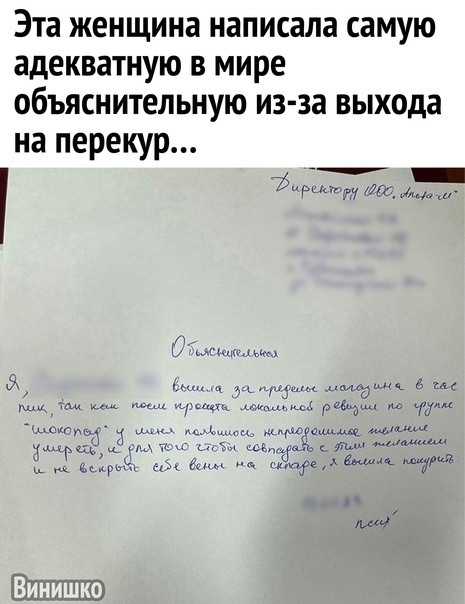 Эта женщина написала самую
адекватную в мире
объяснительную из-за выхода
на перекур...
Директору ООО "Альфа-М"
Объяснительная
Я, вышла за пределы магазина в час
пик, так как после просчета локальной ревизии по группе
"шоколад" у меня появилось непреодолимое желание
умереть, и для того чтобы совладать с этим желанием
и не вскрыть себе вены на складе, я вышла покурить.
псих
Винишко